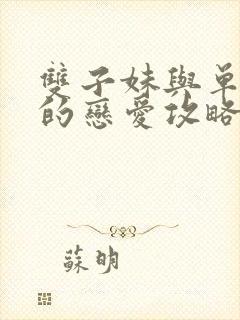 雙子妹與單
的戀愛攻略
蘇明